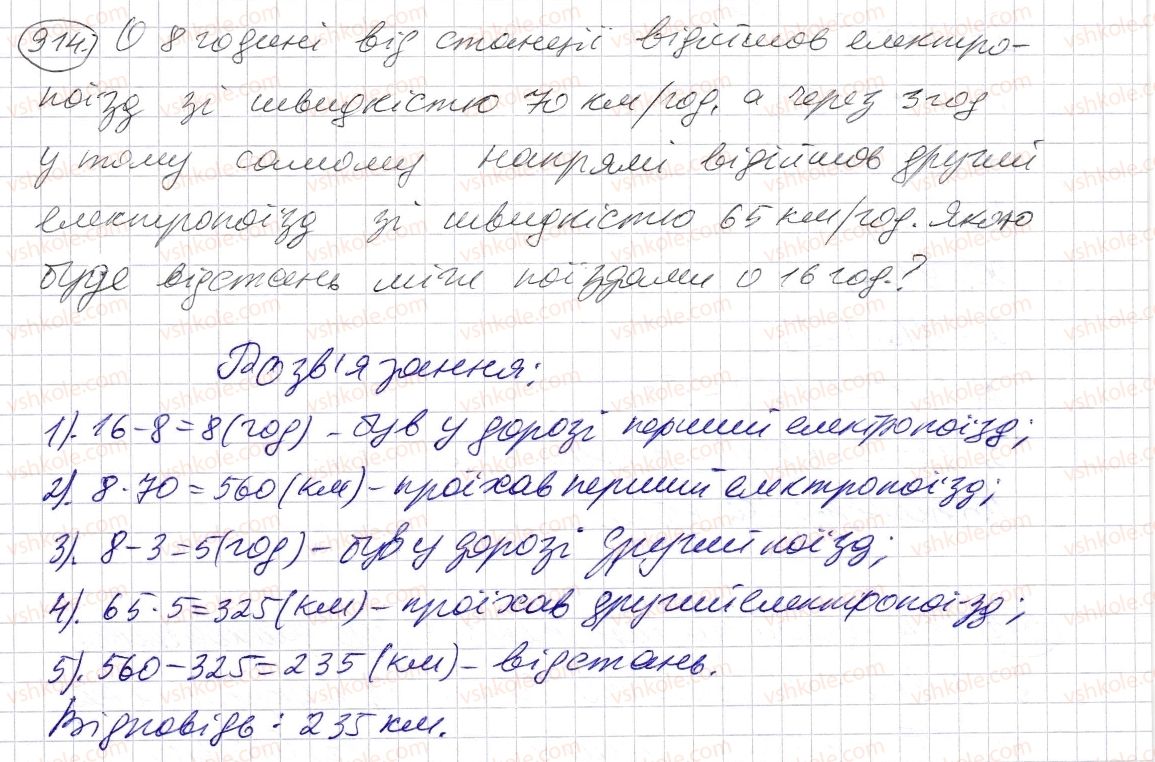 914.) О 8 годині від станції відійшов електро-
поїзд зі швидкістю 70 км/год, а через 3 год
у тому самому напрямі відійшов другий
електропоїзд зі швидкістю 65 км/год. Якою
буде відстань між поїздами о 16 год.?
Розв'язання:
1). 16-8=8(год) - був у дорозі перший електропоїзд;
2). 8·70=560(км) - проїхав перший електропоїзд;
3). 8-3=5(год) - був у дорозі другий поїзд;
4). 65·5=325(км) - проїхав другий електропоїзд;
5). 560-325=235(км) - відстань.
Відповідь: 235 км.